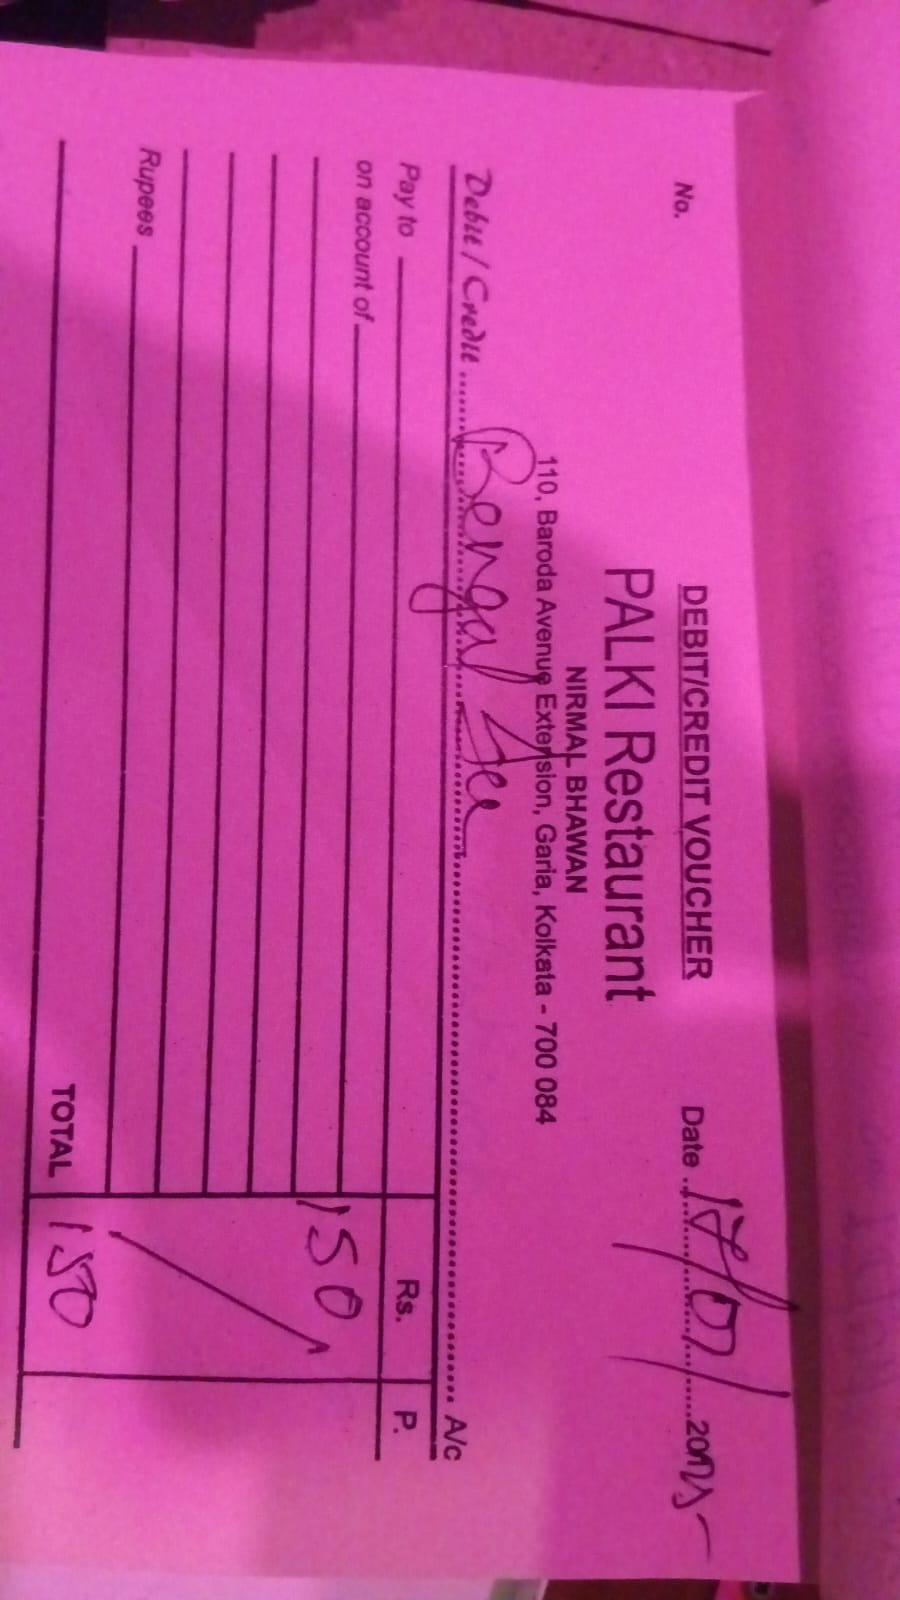 No.
DEBIT/CREDIT VOUCHER
Date 17/07/2025
PALKI Restaurant
NIRMAL BHAWAN
110, Baroda Avenue Extension, Garia, Kolkata - 700 084
Debit / Credit Bengal A/c
Pay to Rs. P.
on account of 150
Rupees
TOTAL 150